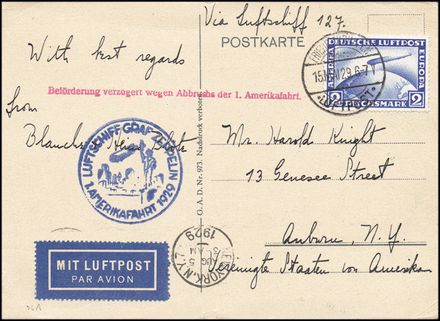 Via Luftschiff 127.
POSTKARTE
With best regards
from
Blanche
Beförderung verzögert wegen Abbruchs der 1. Amerikafahrt.
LUFTSCHIFF GRAF ZEPPELIN
1. AMERIKAFAHRT 1929
DEUTSCHE LUFTPOST
AMERIKA
EUROPA
2 REICHSMARK 2
15.MAI.29.6-7
LUFTPOST
G. A. D. Nr. 973. Nachdruck verboten.
Mr. Harold Knight
13 Genesee Street
Auburn, N.Y.
Vereinigte Staaten von Amerika
MIT LUFTPOST
PAR AVION
NEW YORK, N.Y.
AUG 5
AM
1929